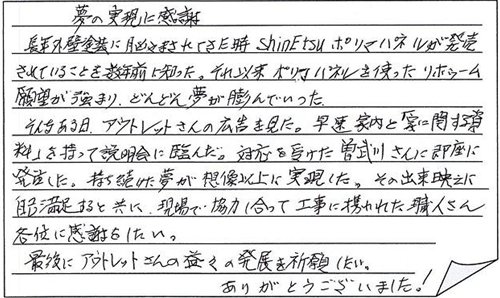 夢の実現に感謝
長年外壁塗装に悩まされてきた時 shinEtsu ポリマパネルが発売
されていることを数年前に知った。それ以来 ポリマパネルを使ったリホーム
願望が強まり、どんどん夢が膨んでいった
そんなある日、アウトレットさんの広告を見た。早速家内と「家に関する資
料」を持って説明会に臨んだ。対応を受けた曽武川さんに即座に
発注した。持ち続けた夢が想像以上に実現した。その出来映えに
満足すると共に、現場で協力し合って工事に携わられた職人さん
各位に感謝をしたい。
最後にアウトレットさんの益々の発展を祈願したい。
ありがとうございました!